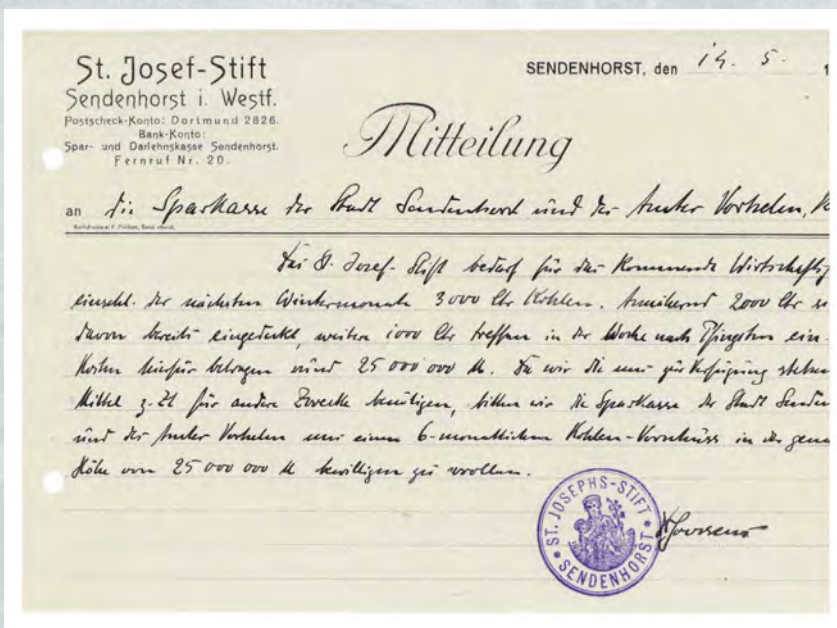 St. Josef-Stift
Sendenhorst i. Westf.
Postscheck-Konto: Dortmund 2826.
Bank-Konto:
Spar- und Darlehnskasse Sendenhorst.
Fernruf Nr. 20.
SENDENHORST, den 14. 5. 1
Mitteilung
an die Sparkasse der Stadt Sendenhorst und der Ämter Vorhelm,
Das St. Josef-Stift bedarf für das kommende Wirtschafts
einschl. der nächsten Wintermonate 3000 Ctr Kohlen. Annähernd 2000 Ctr
davon bereits eingedeckt, weitere 1000 Ctr treffen in der Woche nach Pfingsten ein.
Kosten hierfür betragen rund 25 000 000 M. Da wir die uns zur Verfügung stehen
Mittel z. Zt für andere Zwecke benötigen, bitten wir die Sparkasse der Stadt Senden
und der Ämter Vorhelm uns einen 6-monatlichen Kohlen-Vorschuss in der
Höhe von 25 000 000 M bewilligen zu wollen.
ST. JOSEPHS-STIFT
SENDENHORST